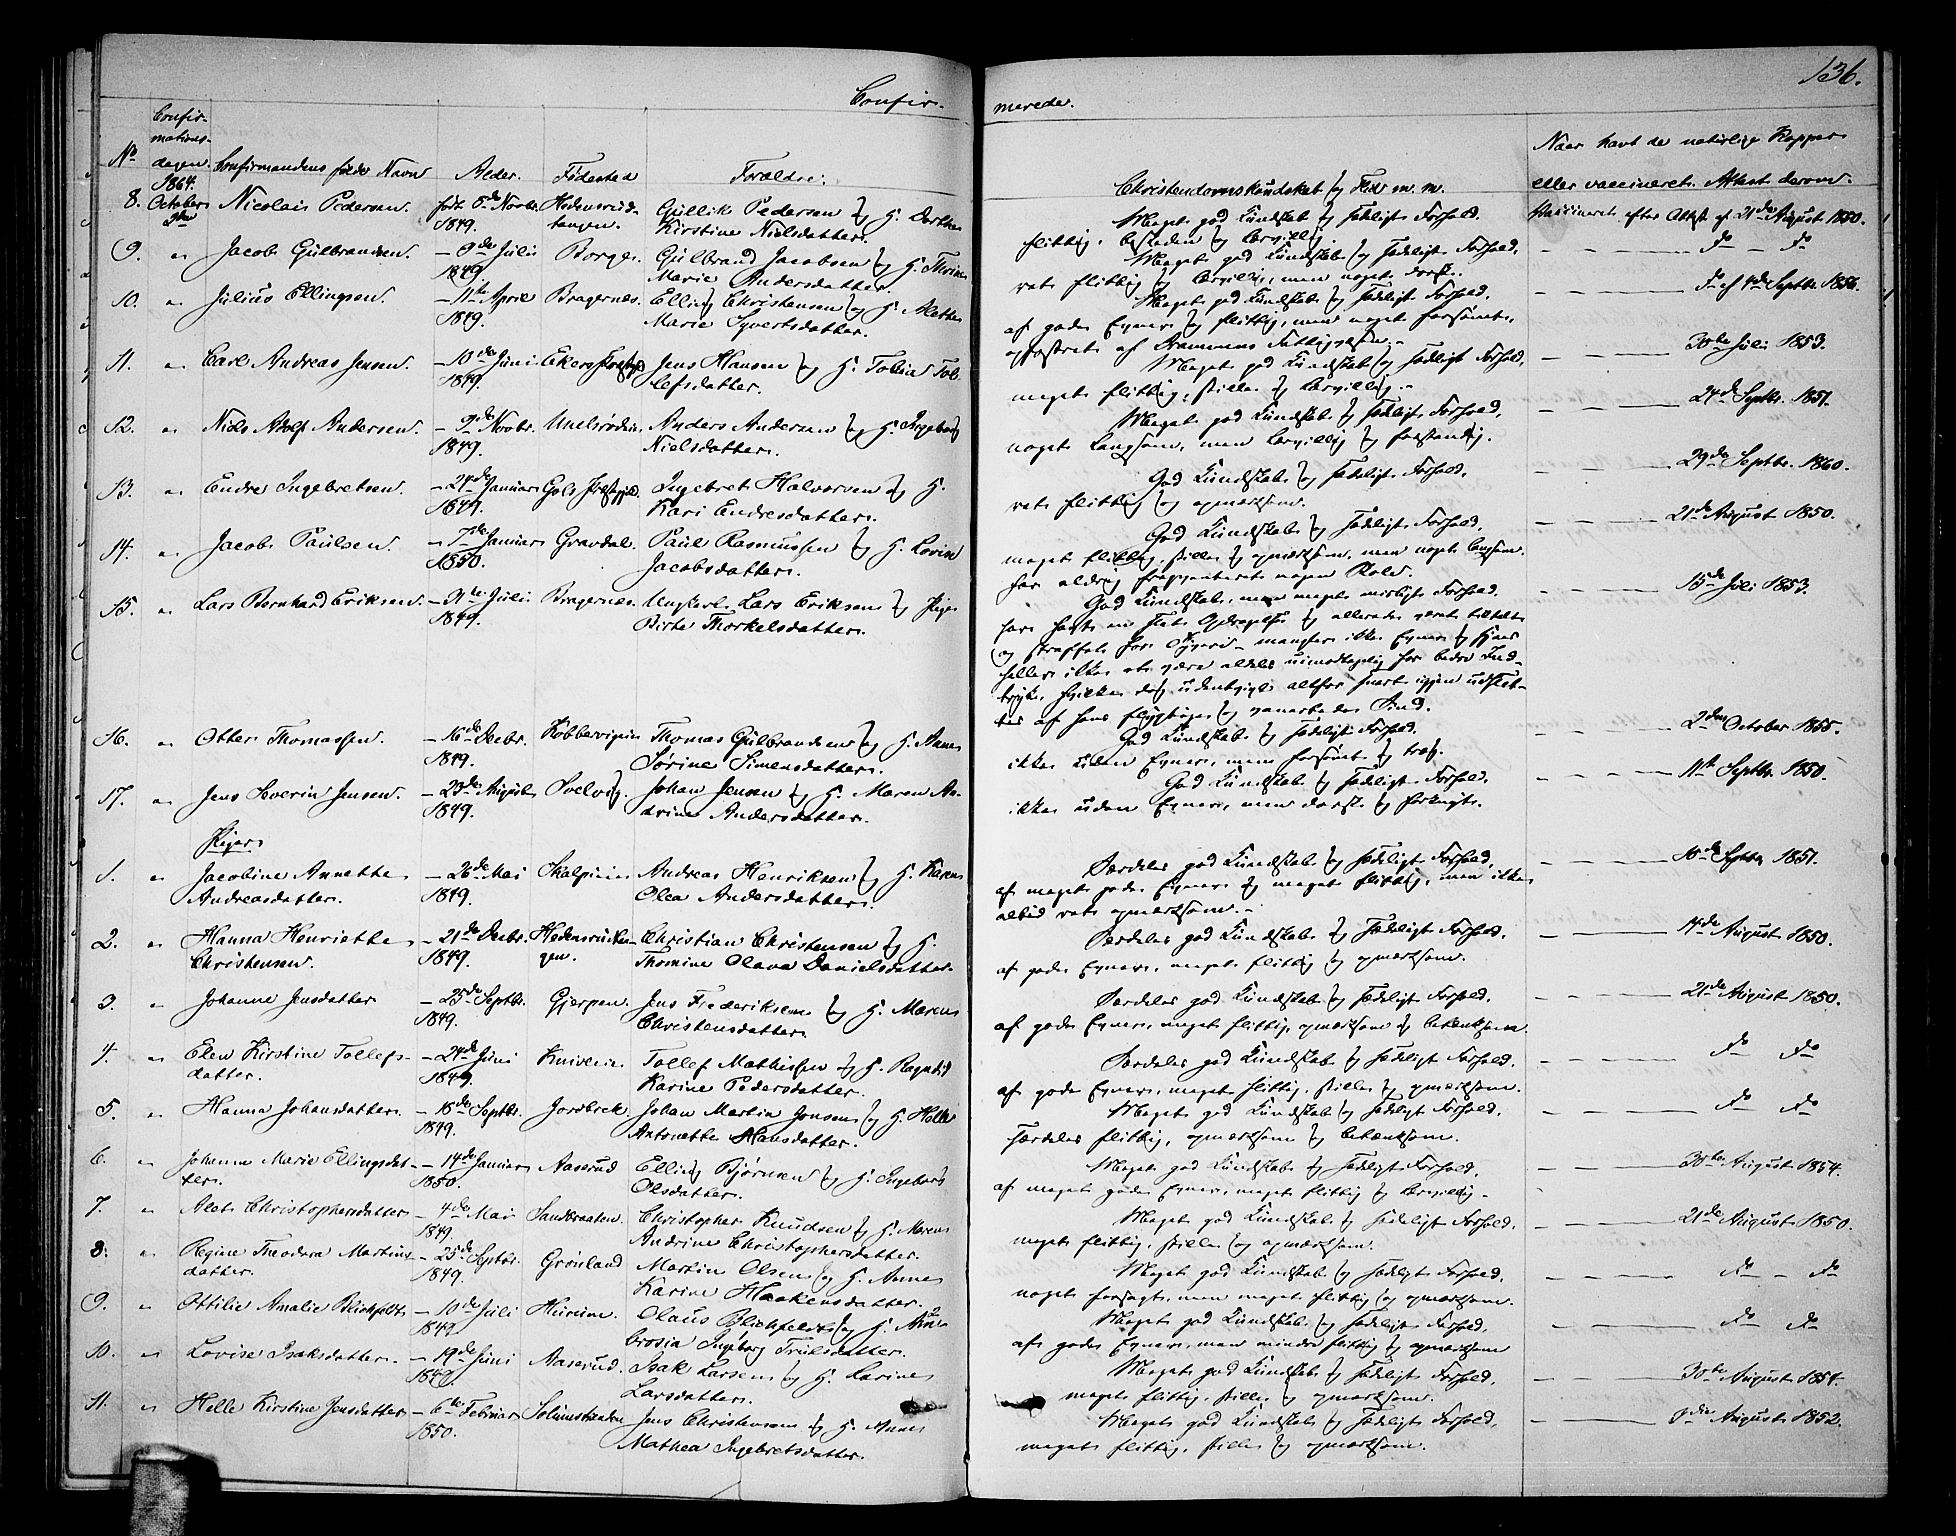 136.
Confir-
merede.
No
Confir-
mations-
dagen.
1864.
Confirmandens fulde Navn
Alder.
Fødested
Forældre.
Christendomskundskab og Flid m. m.
Naar havt de naturlige Kopper
eller vaccineret. Attest derom.
8. October 2den Nicolai Pedersen. født 5te Novbr. 1849. Gullik Pedersen og H. Dorthea
Kirstine Nielsdatter.
Meget god Kundskab og sædeligt Forhold.
flittig, beskeden og lærvillig.
Vaccineret efter Attest af 21de August 1850.
9. " Jacob Gulbrandsen. - 9de Juli 1849. Borge. Gulbrand Jacobsen og H. Thorine
Marie Andersdatter.
Meget god Kundskab og sædeligt Forhold,
ret flittig og lærvillig, men noget dorsk.
Do - Do
10. " Julius Ellingsen. - 11te April 1849. Bragernes. Elling Christensen og H. Alethe
Marie Syvertsdatter.
Meget god Kundskab og sædeligt Forhold,
af gode Evner og flittig, men noget forsømt,
opfostret af Drammens Fattigvæsen.
Do af 4de Septbr. 1856.
11. " Carl Andreas Jensen. - 10de Juni 1849. Eker Jens Hansen og H. Tobine Tol-
lefsdatter.
Meget god Kundskab og sædeligt Forhold,
meget flittig, stille og lærvillig.
30te Juli 1853.
12. " Niels Adolf Andersen. - 9de Novbr. 1849. Anders Andersen og H. Ingeborg
Nielsdatter.
Meget god Kundskab og sædeligt Forhold,
noget langsom, men lærvillig og forstandig.
24de Septbr. 1851.
13. " Endre Ingebretsen. - 24de Januar 1849. Gols Præstegjeld. Ingebret Halvorsen og H.
Kari Endresdatter.
God Kundskab og sædeligt Forhold,
ret flittig og opmærksom.
29de Septbr. 1860.
14. " Jacob Paulsen. - 7de Januar 1850. Gravdal. Paul Rasmussen og H. Lovise
Jacobsdatter.
God Kundskab og sædeligt Forhold,
meget flittig, stille og opmærksom, men noget langsom.
har aldrig frequenteret nogen Skole.
21de August 1850.
15. " Lars Bernhard Eriksen. - 31te Juli 1849. Bragernes. Ungkarl Lars Eriksen og Pige
Birte Thorkelsdatter.
God Kundskab, men meget misligt Forhold,
og straffet for Tyveri - mangler ikke Evner og synes
heller ikke at være aldeles uimodtagelig for bedre Ind-
tryk,
15de Juli 1853.
16. " Otter Thomassen. - 16de Decbr. 1849. Kobbervigen Thomas Gulbrandsen og H. Anne
Sørine Simensdatter.
God Kundskab og sædeligt Forhold,
ikke uden Evner, men forsømt og træg.
2den October 1855.
17. " Jens Severin Jensen. - 23de August 1849. Svelvig. Johan Jensen og H. Maren An-
drine Andersdatter.
God Kundskab og sædeligt Forhold,
ikke uden Evner, men dorsk og forknyt.
11te Septbr. 1850.
Piger
1. " Jacobine Annette
Andreasdatter. - 26de Mai 1849. Skalpinie Andreas Henriksen og H. Karen
Olea Andersdatter.
Særdeles god Kundskab og sædeligt Forhold,
af meget gode Evner og meget flittig, men ikke
altid ret opmærksom.
10de Septbr. 1851.
2. " Hanna Henriette
Christensen. - 21de Decbr. 1849. Christian Christensen og H.
Thomine Olava Danielsdatter.
Særdeles god Kundskab og sædeligt Forhold,
af gode Evner, meget flittig og opmærksom.
14de August 1850.
3. " Johanne Jensdatter - 25de Septbr. 1849. Gjerpen. Jens Frederiksen og H. Maren
Christensdatter.
Særdeles god Kundskab og sædeligt Forhold,
af gode Evner, meget flittig, opmærksom og betænksom.
21de August 1850.
4. " Elen Kirstine Tollefs-
datter. - 24de Juni 1849. Kniveien Tollef Mathisen og H. Ragnild
Karine Pedersdatter.
Særdeles god Kundskab og sædeligt Forhold,
af gode Evner, meget flittig, stille og opmærksom.
Do Do
5. " Hanna Johansdatter. - 18de Septbr. 1849. Jordbræk. Johan Martin Jensen og H. Helle
Antonette Hansdatter.
Meget god Kundskab og sædeligt Forhold,
særdeles flittig, opmærksom og betænksom.
Do Do
6. " Johanne Marie Ellingsdat-
ter. - 14de Januar 1850. Aaserud Elling Bjørnsen og H. Ingeborg
Olsdatter.
Meget god Kundskab og sædeligt Forhold,
af meget gode Evner, meget flittig og lærvillig.
30te August 1854.
7. " Alet Christophersdatter - 4de Mai 1849. Sandbraaten. Christopher Knudsen og H. Maren
Andrine Christophersdatter.
Meget god Kundskab og sædeligt Forhold,
meget flittig, stille og opmærksom.
21de August 1850.
8. " Regine Theodora Martins-
datter. - 25de Septbr. 1849. Grønland Martin Olsen og H. Anne
Karine Haakensdatter.
Meget god Kundskab og sædeligt Forhold,
noget forsagt, men meget flittig og opmærksom.
Do - Do
9. " Ottilie Amalie Blichfeldt. - 10de Juli 1849. Hurum. Olaus Blichfeldt og H. Am-
brosia Ingeborg Trulsdatter.
Meget god Kundskab og sædeligt Forhold,
af gode Evner, men mindre flittig og opmærksom
Do Do
10. " Lovise Isaksdatter. - 19de Juni 1849. Aaserud. Isak Larsen og H. Karine
Larsdatter.
Meget god Kundskab og sædeligt Forhold,
meget flittig, stille og opmærksom.
30te August 1854.
11. " Helle Kirstine Jensdatter - 6te Februar 1850. Solumstranden Jens Christensen og H. Anne
Mathea Ingebretsdatter.
Meget god Kundskab og sædeligt Forhold,
meget flittig, stille og opmærksom.
3die August 1852.